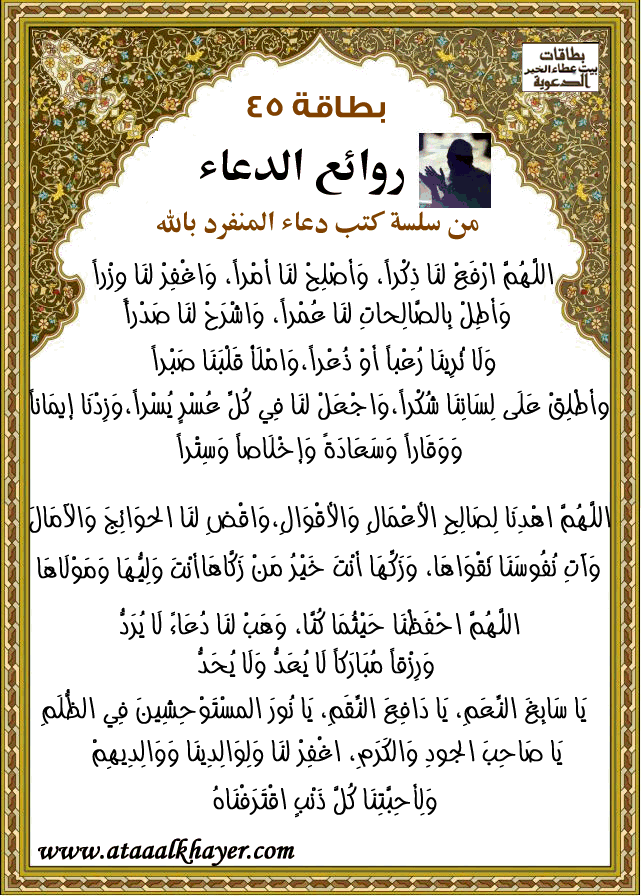 بطاقات
بيت عطاء الخير
الدعوية
بطاقة ٤٥
روائع الدعاء
من سلسة كتب دعاء المنفرد بالله
اللَّهُمَّ ارْفَعْ لَنَا ذِكْراً، وَأَصْلِحْ لَنَا أَمْراً، وَاغْفِرْ لَنَا وِزْراً
وَأَطِلْ بِالصَّالِحَاتِ لَنَا عُمْراً، وَاشْرَحْ لَنَا صَدْراً
وَلَا تُرِينَا رُعْباً أَوْ ذُعْراً،وَامْلَأْ قَلْبَنَا صَبْراً
وأَطْلِقْ عَلَى لِسَانِنَا شُكْراً،وَاجْعَلْ لَنَا فِي كُلِّ عُسْرٍ يُسْراً،وَزِدْنَا إِيمَاناً
وَوَقَاراً وَسَعَادَةً وَإِخْلَاصاً وَسِتْراً
اللَّهُمَّ اهْدِنَا لِصَالِحِ الأَعْمَالِ وَالأَقْوَالِ،وَاقْضِ لَنَا الحَوَائِجَ وَالآمَالَ
وَآتِ نُفُوسَنَا تَقْوَاهَا، وَزَكِّهَا أَنْتَ خَيْرُ مَنْ زَكَّاهَا أَنْتَ وَلِيُّهَا وَمَوْلَاهَا
اللَّهُمَّ احْفَظْنَا حَيْثُمَا كُنَّا، وَهَبْ لَنَا دُعَاءً لَا يُرَدُّ
وَرِزْقاً مُبَارَكاً لَا يُعَدُّ وَلَا يُحَدُّ
يَا سَابِغَ النِّعَمِ، يَا دَافِعَ النِّقَمِ، يَا نُورَ المسْتَوْحِشِينَ فِي الظُّلَمِ
يَا صَاحِبَ الجودِ وَالكَرَمِ، اغْفِرْ لَنَا وَلِوَالِدِينَا وَوَالِدِيهِمْ
وَلِأَحِبَّتِنَا كُلَّ ذَنْبٍ اقْتَرَفْنَاهُ
www.ataaalkhayer.com